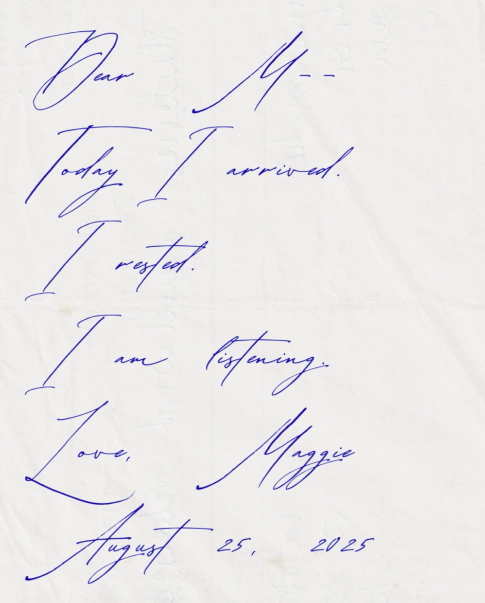 Dear M--
Today I arrived.
I rested.
I am listening.
Love, Maggie
August 25, 2025